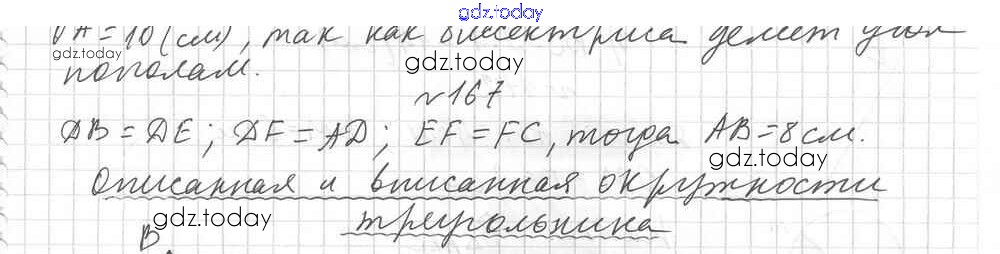 gdz.today
VA = 10 (см), так как биссектриса делит угол
gdz.today
пополам.
gdz.today
№ 167
DB = DE; DF = AD; EF = FC, тогда AB = 8 см.
gdz.today
Описанная и вписанная окружности
gdz.today
треугольника
B